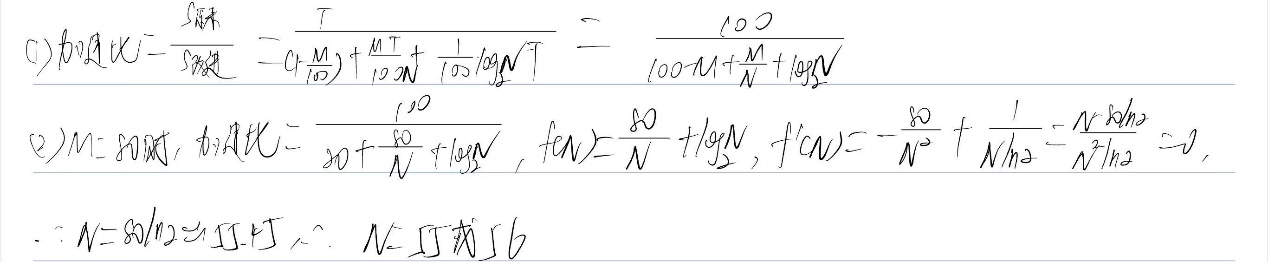 (1) 加速比 = S原来/S改进 = T/((1-M/100)+MT/100N+1/100 log₂N T) = 100/(100-M+M/N+log₂N)
(2) M=80时, 加速比 = 100/(20+80/N+log₂N), f(N)=80/N+log₂N, f'(N)=-80/N²+1/(Nln2)=(N-80ln2)/(N²ln2)=0,
∴ N=80ln2≈55.45, ∴ N=55或56